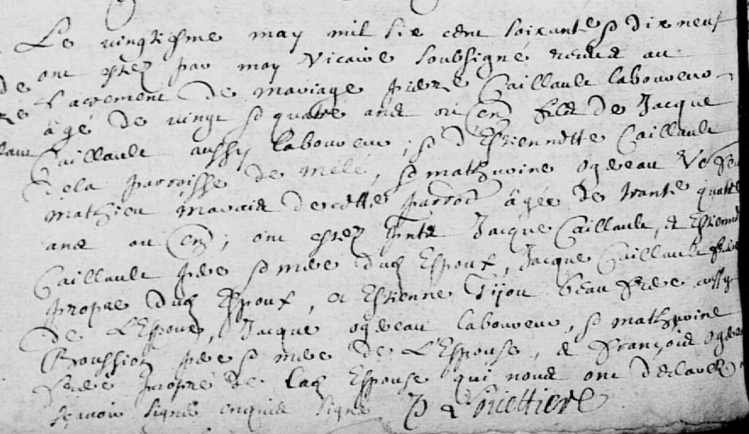 Le vingtiesme may mil six cent soixante et dix neuf
ont estez par moy vicaire soubsigné receus au
sacrement de mariage pierre Caillault laboureur
âgé de vingt et quatre ans ou en filz de Jacque
Caillault aussy laboureur, et d'Estiennette Caillault
de la parroisse de melé, et mathurine ogereau vefve
mathieu marais de cette âgée de trante quattre
ans ou en; ont estez pnts Jacque Caillault, et Estiennette
Caillault pere et mere dudt Espoux, Jacque Caillault frere
propre dudt Espoux, et Estienne Tijou beau frere aussy
de L'Espoux, Jacque ogereau laboureur, et mathurine
Roussion pere et mere de L'Espouse, et françois ogereau
frere propre de ladt Espouse qui nous ont declaré ne
sçavoir signer enquis signer